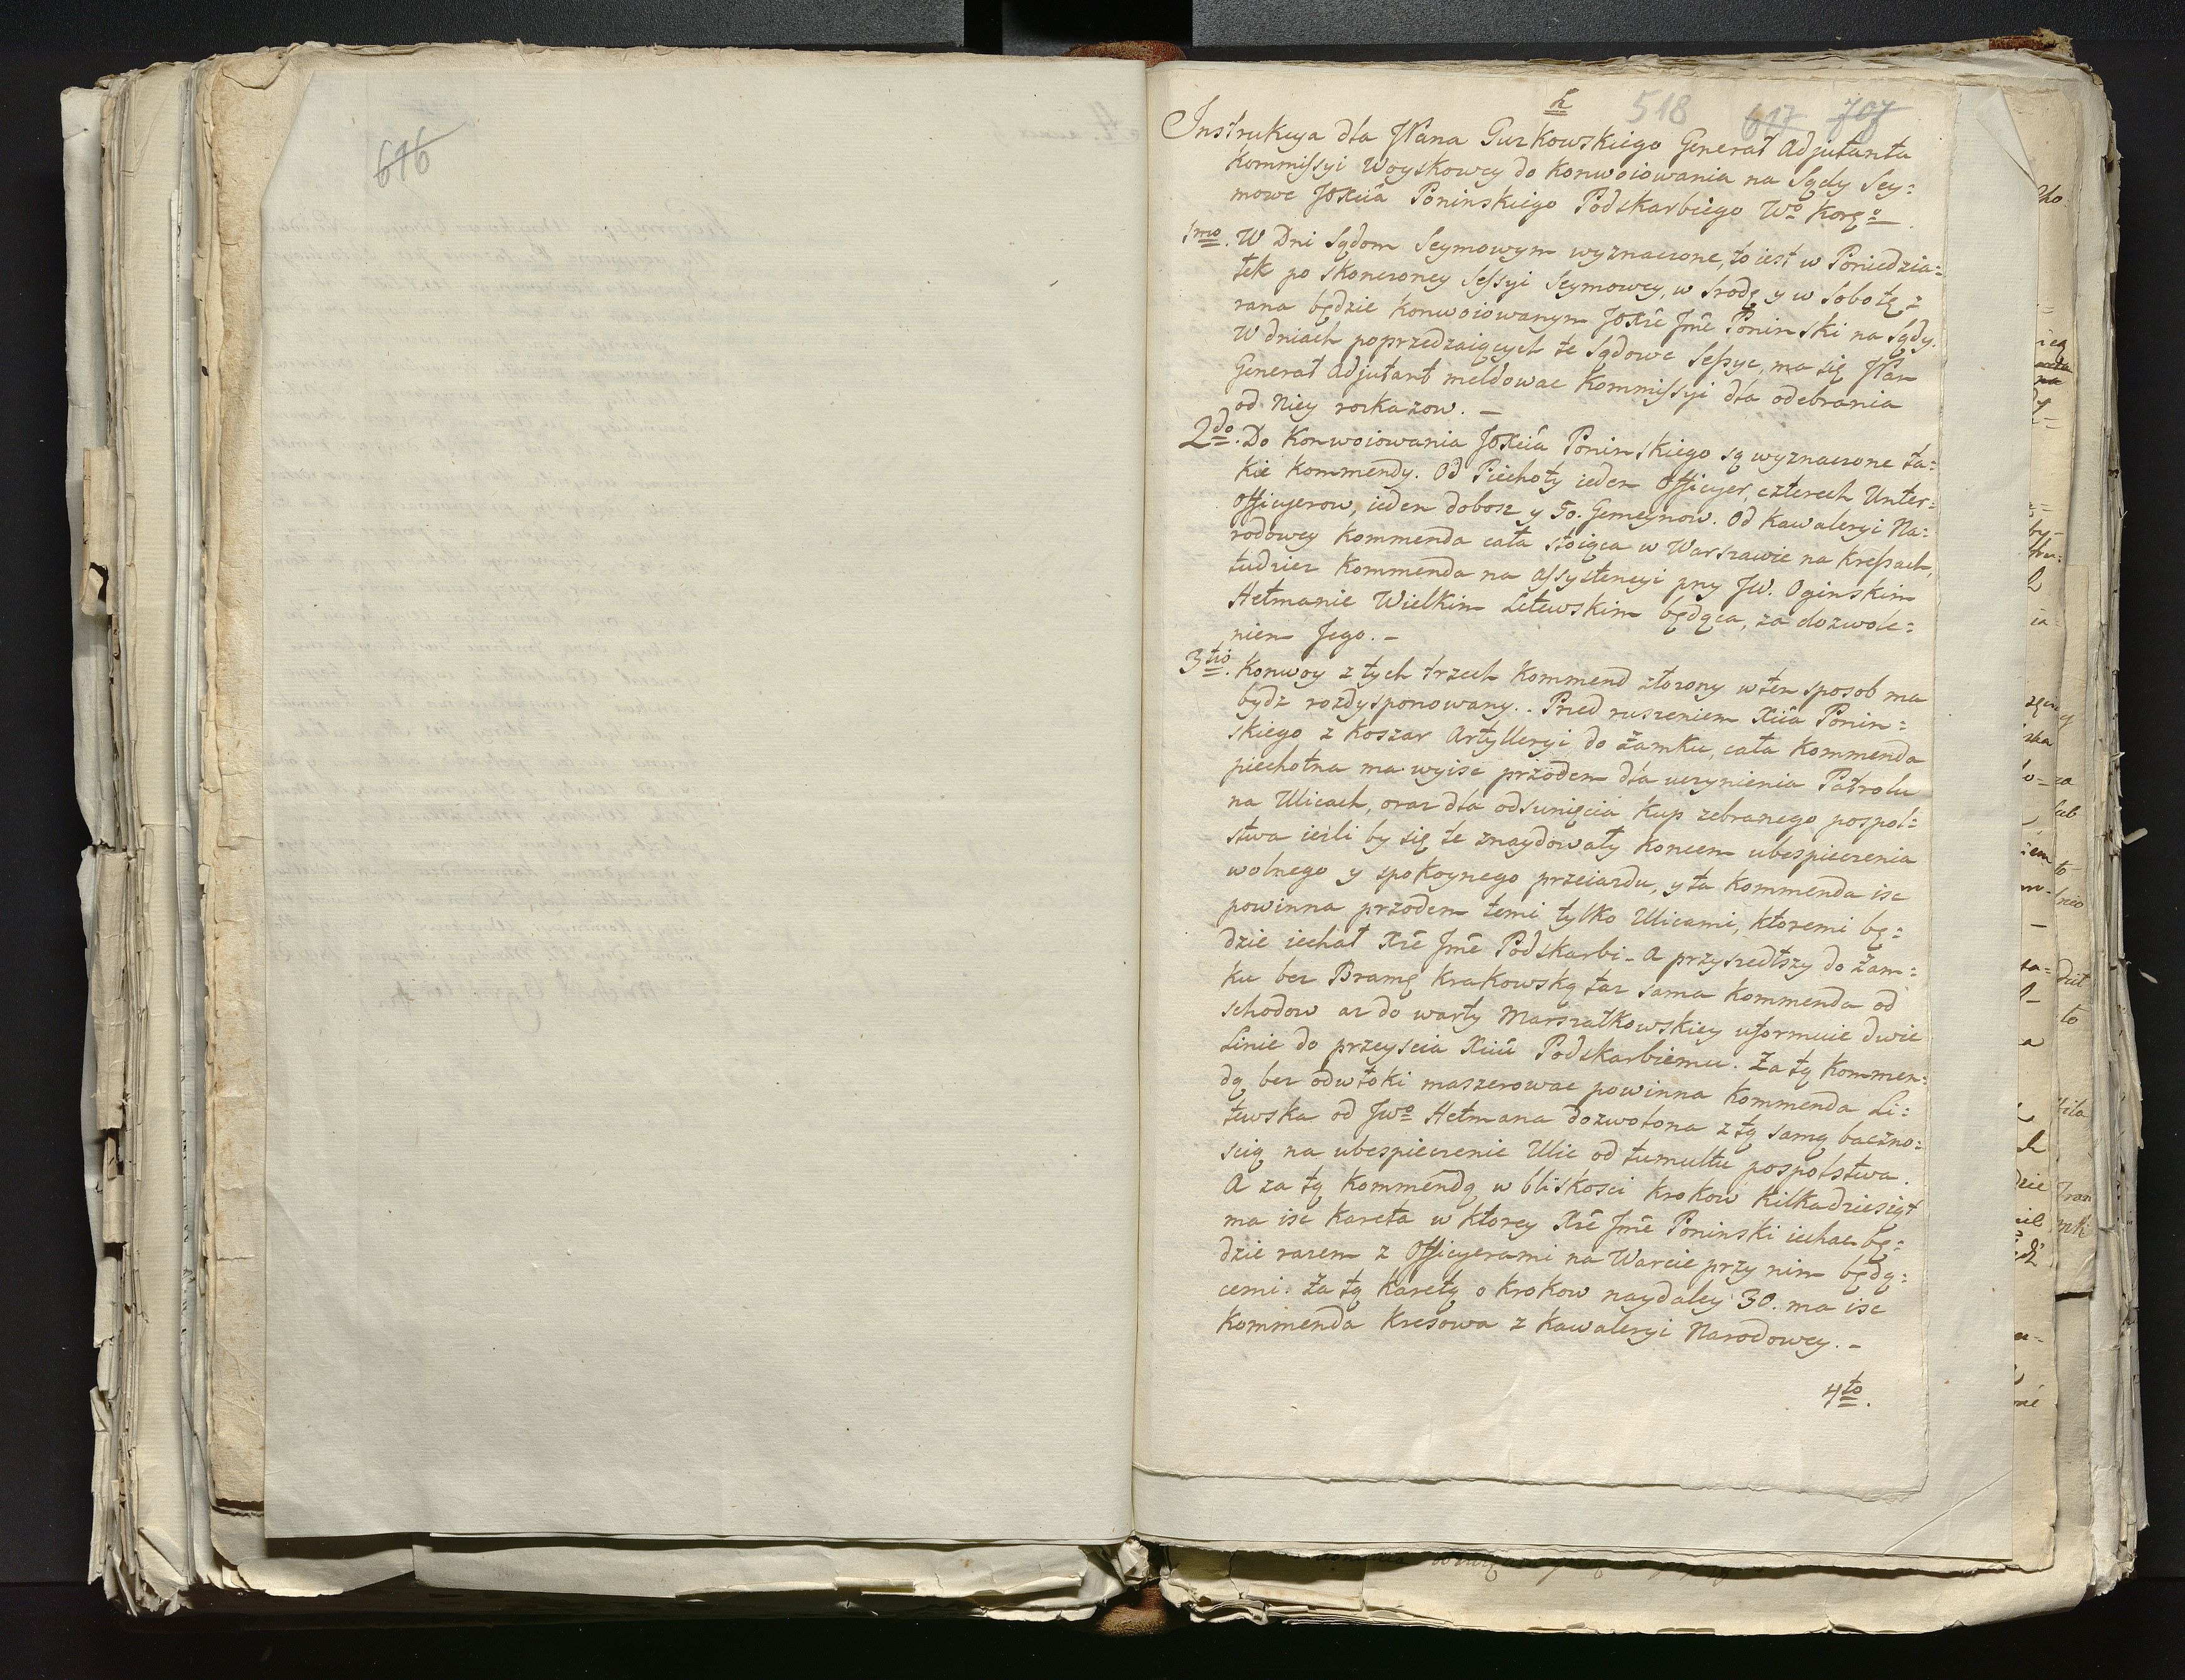 616
h
518 617 707
Instrukcya dla JPana Gurkowskiego Generał Adjutanta
Kommissyi Woyskowey do konwoiowania na Sądy Sey=
mowe JOXcia Poninskiego Podskarbiego Wo Korgo.
1mo. W Dni Sądom Seymowym wyznaczone, to iest w Poniedzia=
łek po skonczoney Sessyi Seymowey, w Srodę y w Sobotę z
rana będzie konwoiowanym JOXże Jmć Poninski na Sądy.
W dniach poprzedzaiących te Sądowe Sessye, ma się JPan
Generał Adjutant meldowac Kommissyi dla odebrania
od Niey rozkazow. –
2do. Do Konwoiowania JOXcia Poninskiego są wyznaczone ta=
kie Kommendy. Od Piechoty ieden Officyer, czterech Unter=
Officyerow, ieden dobosz y 50. Gemeynow. Od Kawaleryi Na=
rodowey Kommenda cała stoiąca w Warszawie na Kressach,
tudziez Kommenda na Assystencyi przy JW. Oginskim
Hetmanie Wielkim Litewskim będąca, za dozwole=
niem Jego. –
3tio. Konwoy z tych trzech Kommend złozony w ten sposob ma
bydz rozdysponowany. Przed ruszeniem Xcia Ponin=
skiego z Koszar Artylleryi do Zamku, cała Kommenda
piechotna ma wyisc przodem dla uczynienia Patrolu
na Ulicach, oraz dla odsunięcia Kup zebranego pospol=
stwa iezli by się te znaydowały koncem ubespieczenia
wolnego y spokoynego przeiazdu, y ta Kommenda isc
powinna przodem temi tylko Ulicami, ktoremi bę=
dzie iechał Xże Jmć Podskarbi. A przyszedłszy do Zam=
ku bez Bramę Krakowską taz sama Kommenda od
schodow az do warty Marszałkowskiey uformuie dwie
Linie do przeyscia Xciu Podskarbiemu. Za tą Kommen=
dą bez odwłoki maszerowac powinna Kommenda Li=
tewska od JWo Hetmana dozwolona z tą samą baczno=
scią na ubespieczenie Ulic od tumultu pospolstwa.
A za tą Kommendą w bliskosci krokow kilkadziesiąt
ma isc kareta w ktorey Xże Jmć Poninski iechac bę=
dzie razem z Officyerami na Warcie przy nim będą=
cemi. Za tą karetą o krokow naydaley 30. ma isc
Kommenda Kresowa z Kawaleryi Narodowey. –
4to.